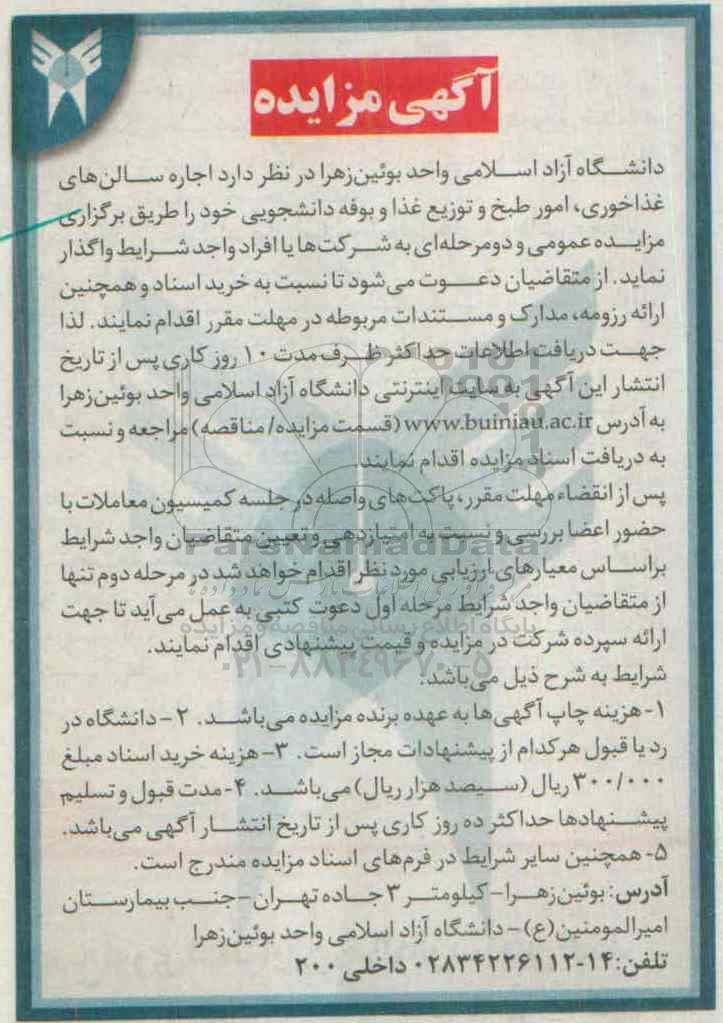 آگهی مزایده
دانشگاه آزاد اسلامی واحد بوئین‌زهرا در نظر دارد اجاره سالن‌های
غذاخوری، امور طبخ و توزیع غذا و بوفه دانشجویی خود را طریق برگزاری
مزایده عمومی و دومرحله‌ای به شرکت‌ها یا افراد واجد شرایط واگذار
نماید. از متقاضیان دعوت می‌شود تا نسبت به خرید اسناد و همچنین
ارائه رزومه، مدارک و مستندات مربوطه در مهلت مقرر اقدام نمایند. لذا
جهت دریافت اطلاعات حداکثر ظرف مدت ۱۰ روز کاری پس از تاریخ
انتشار این آگهی به سایت اینترنتی دانشگاه آزاد اسلامی واحد بوئین‌زهرا
به آدرس www.buiniau.ac.ir (قسمت مزایده/ مناقصه) مراجعه و نسبت
به دریافت اسناد مزایده اقدام نمایند.
پس از انقضاء مهلت مقرر، پاکت‌های واصله در جلسه کمیسیون معاملات با
حضور اعضا بررسی و نسبت به امتیازدهی و تعیین متقاضیان واجد شرایط
ParsNamadData
براساس معیارهای ارزیابی مورد نظر اقدام خواهد شد در مرحله دوم تنها
از متقاضیان واجد شرایط مرحله اول دعوت کتبی به عمل می‌آید تا جهت
پایگاه اطلاع رسانی مناقصه و مزایده
ارائه سپرده شرکت در مزایده و قیمت پیشنهادی اقدام نمایند.
۰۲۱-۸۸۳۴۹۶۷۰-۵
شرایط به شرح ذیل می‌باشد:
۱- هزینه چاپ آگهی‌ها به عهده برنده مزایده می‌باشد. ۲- دانشگاه در
رد یا قبول هرکدام از پیشنهادات مجاز است. ۳- هزینه خرید اسناد مبلغ
۳۰۰/۰۰۰ ریال (سیصد هزار ریال) می‌باشد. ۴- مدت قبول و تسلیم
پیشنهادها حداکثر ده روز کاری پس از تاریخ انتشار آگهی می‌باشد.
۵- همچنین سایر شرایط در فرم‌های اسناد مزایده مندرج است.
آدرس: بوئین‌زهرا- کیلومتر ۳ جاده تهران- جنب بیمارستان
امیرالمومنین(ع)- دانشگاه آزاد اسلامی واحد بوئین‌زهرا
تلفن: ۱۴-۰۲۸۳۴۲۲۶۱۱۲ داخلی ۲۰۰